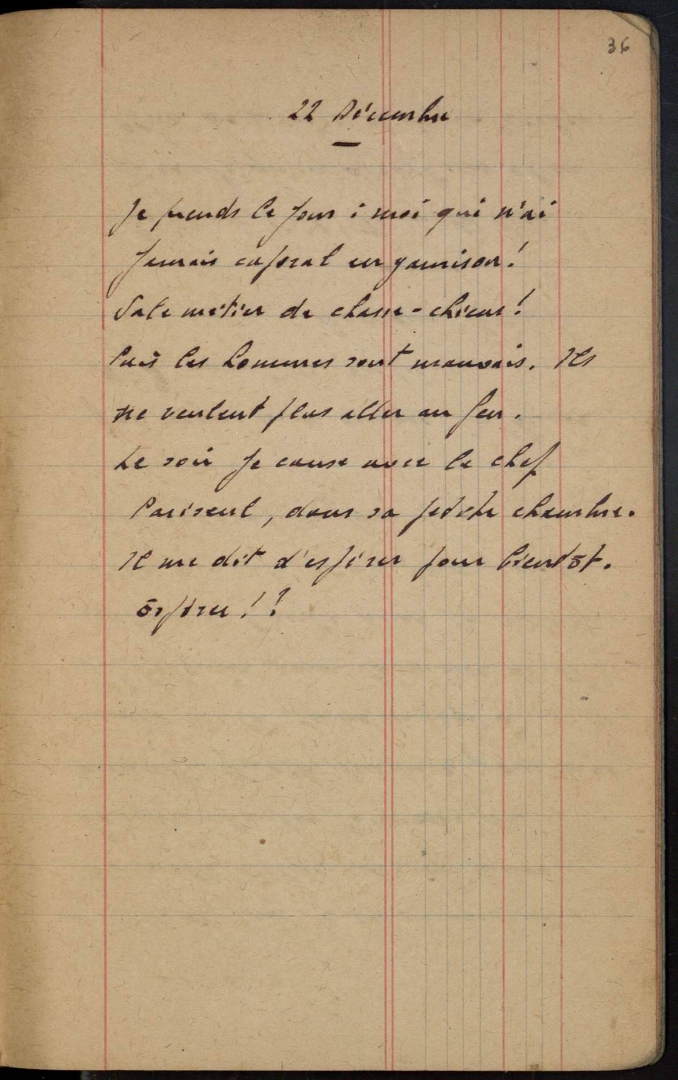 36
22 Décembre
Je prends le jour ; moi qui n'ai
jamais caporal en garnison !
Sale métier de chasse-chiens !
Puis les hommes sont mauvais. Ils
ne veulent plus aller au feu.
Le soir je cause avec le chef
Pariseul, dans sa petite chambre.
Il me dit d'espérer pour bientôt.
Espérer ! ?